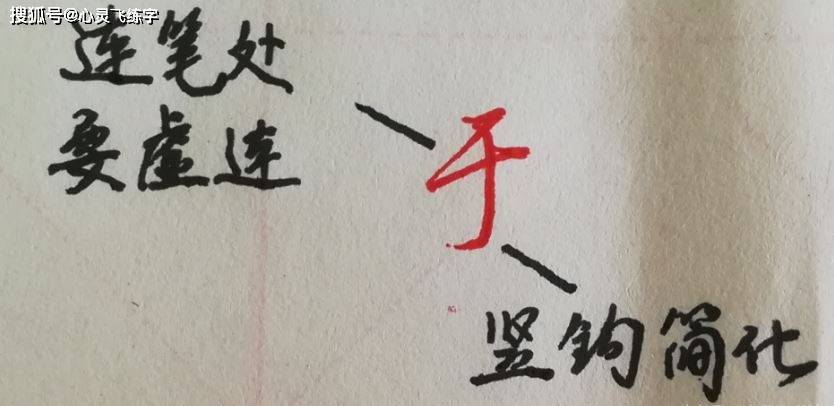 搜狐号@心灵飞练字
连笔处
要虚连
于
竖钩简化